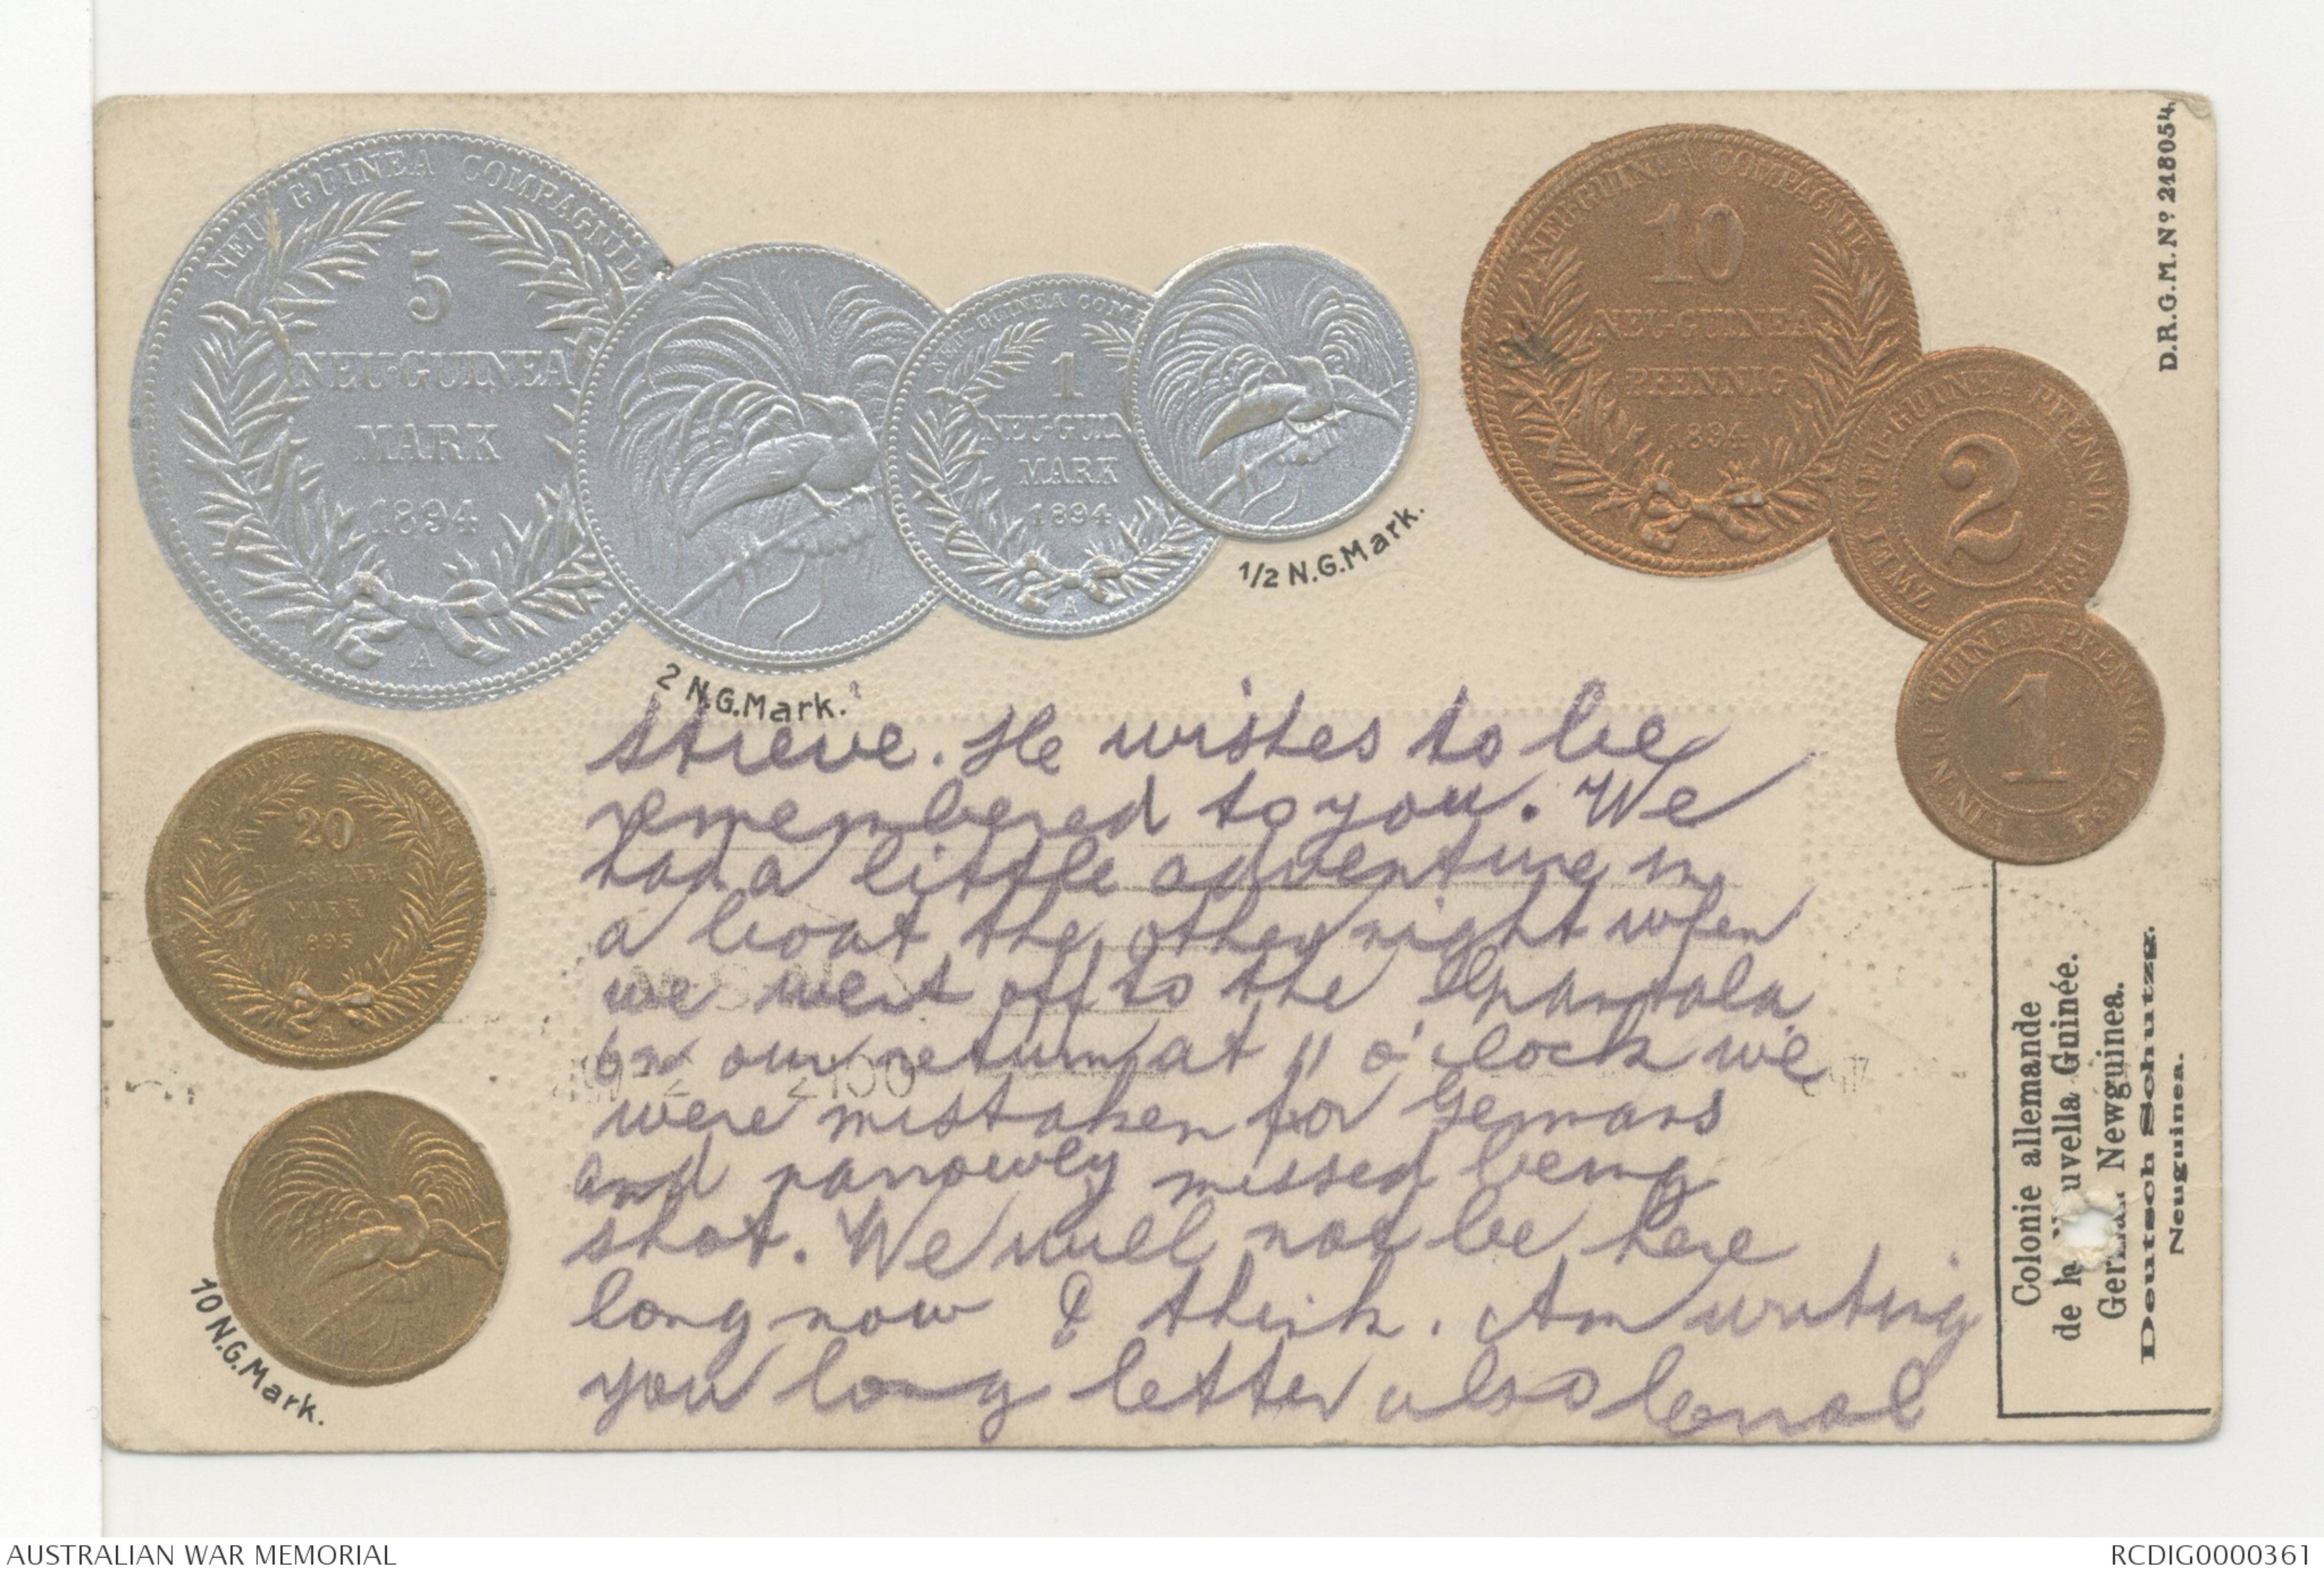 NEU GUINEA COMPAGNIE
5
NEU-GUINEA
MARK
1894
A
2 N.G.Mark.
NEU-GUINEA COMP
1
NEU-GUIN
MARK
1894
A
1/2 N.G.Mark.
NEU-GUINEA COMPAGNIE
10
NEU-GUINEA
PFENNIG
1894
A
NEU-GUINEA PFENNIG
ZWEI
2
1894
NEU GUINEA PFENNIG
EIN
1
D.R.G.M.Nº 218054.
GUINEA COMPAGNIE
20
MARK
1895
A
10 N.G.Mark.
strieve. He wishes to be
remembered to you. We
had a little adventure in
a boat the other night when
we went off to the
on our return at 11 o'clock we
were mistaken for Germans
and narrowly missed being
shot. We will not be here
long now I think. Am writing
you long letter also
Colonie allemande
de la Nouvella Guinée.
German Newguinea.
Deutsch Schutzg.
Neuguinea.
AUSTRALIAN WAR MEMORIAL
RCDIG0000361